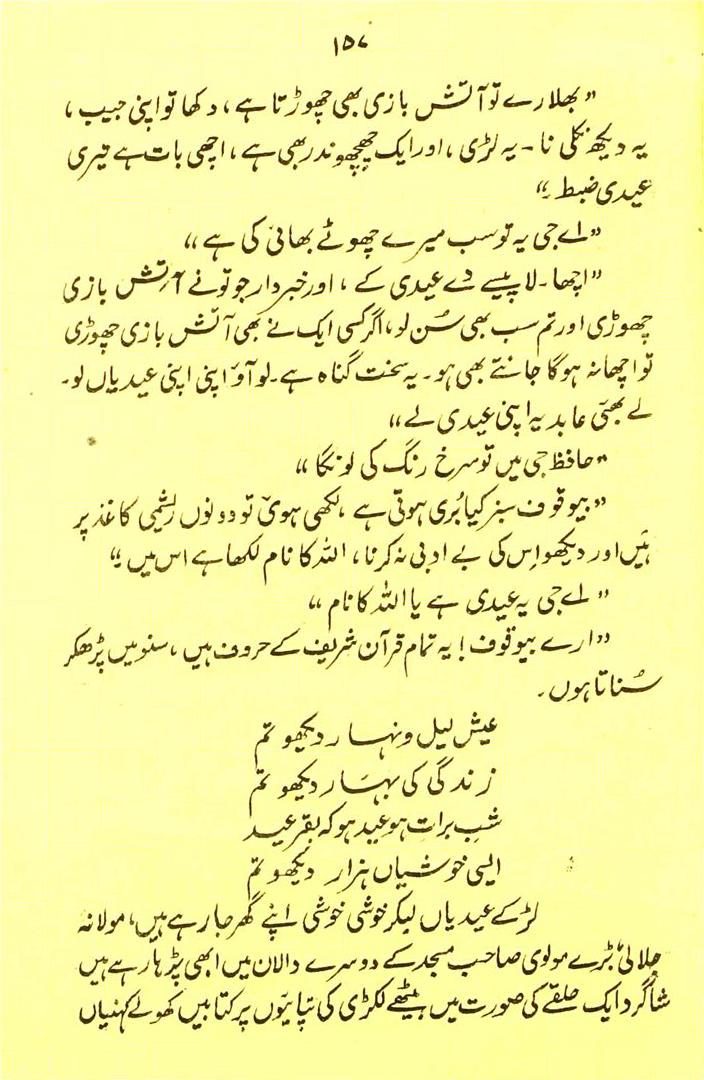 ۱۵۷
”بھلا رے تو آتش بازی بھی چھوڑتا ہے، دکھا تو اپنی جیب،
یہ دیکھ نکلی نا - یہ لڑی، اور ایک چھچھوندر بھی ہے، اچھی بات ہے تیری
عیدی ضبط۔“
”اے جی یہ تو سب میرے چھوٹے بھائی کی ہے“
”اچھا۔ لا پیسے دے عیدی کے، اور خبردار جو تو نے آتش بازی
چھوڑی اور تم سب بھی سُن لو، اگر کسی ایک نے بھی آتش بازی چھوڑی
تو اچھا نہ ہوگا جانتے بھی ہو۔ یہ سخت گناہ ہے۔ لو آؤ اپنی اپنی عیدیاں لو۔
لے بھئی عابد یہ اپنی عیدی لے“
”حافظ جی میں تو سرخ رنگ کی لونگا“
”بیوقوف سبز کیا بُری ہوتی ہے، لکھی ہوئی تو دونوں ریشمی کاغذ پر
ہیں اور دیکھو اِس کی بے ادبی نہ کرنا، اللہ کا نام لکھا ہے اس میں۔“
”اے جی یہ عیدی ہے یا اللہ کا نام“
”ارے بیوقوف! یہ تمام قرآن شریف کے حروف ہیں، سنو میں پڑھکر
سُناتا ہوں۔
عیش لیل و نہار دیکھو تم
زندگی کی بہار دیکھو تم
شب برات ہو عید ہو کہ بقر عید
ایسی خوشیاں ہزار دیکھو تم
لڑکے عیدیاں لیکر خوشی خوشی اپنے گھر جا رہے ہیں، مولانہ
جلالی، بڑے مولوی صاحب مسجد کے دوسرے دالان میں ابھی پڑھا رہے ہیں
شاگرد ایک حلقے کی صورت میں بیٹھے لکڑی کی تپائیوں پر کتابیں کھولے کہنیاں